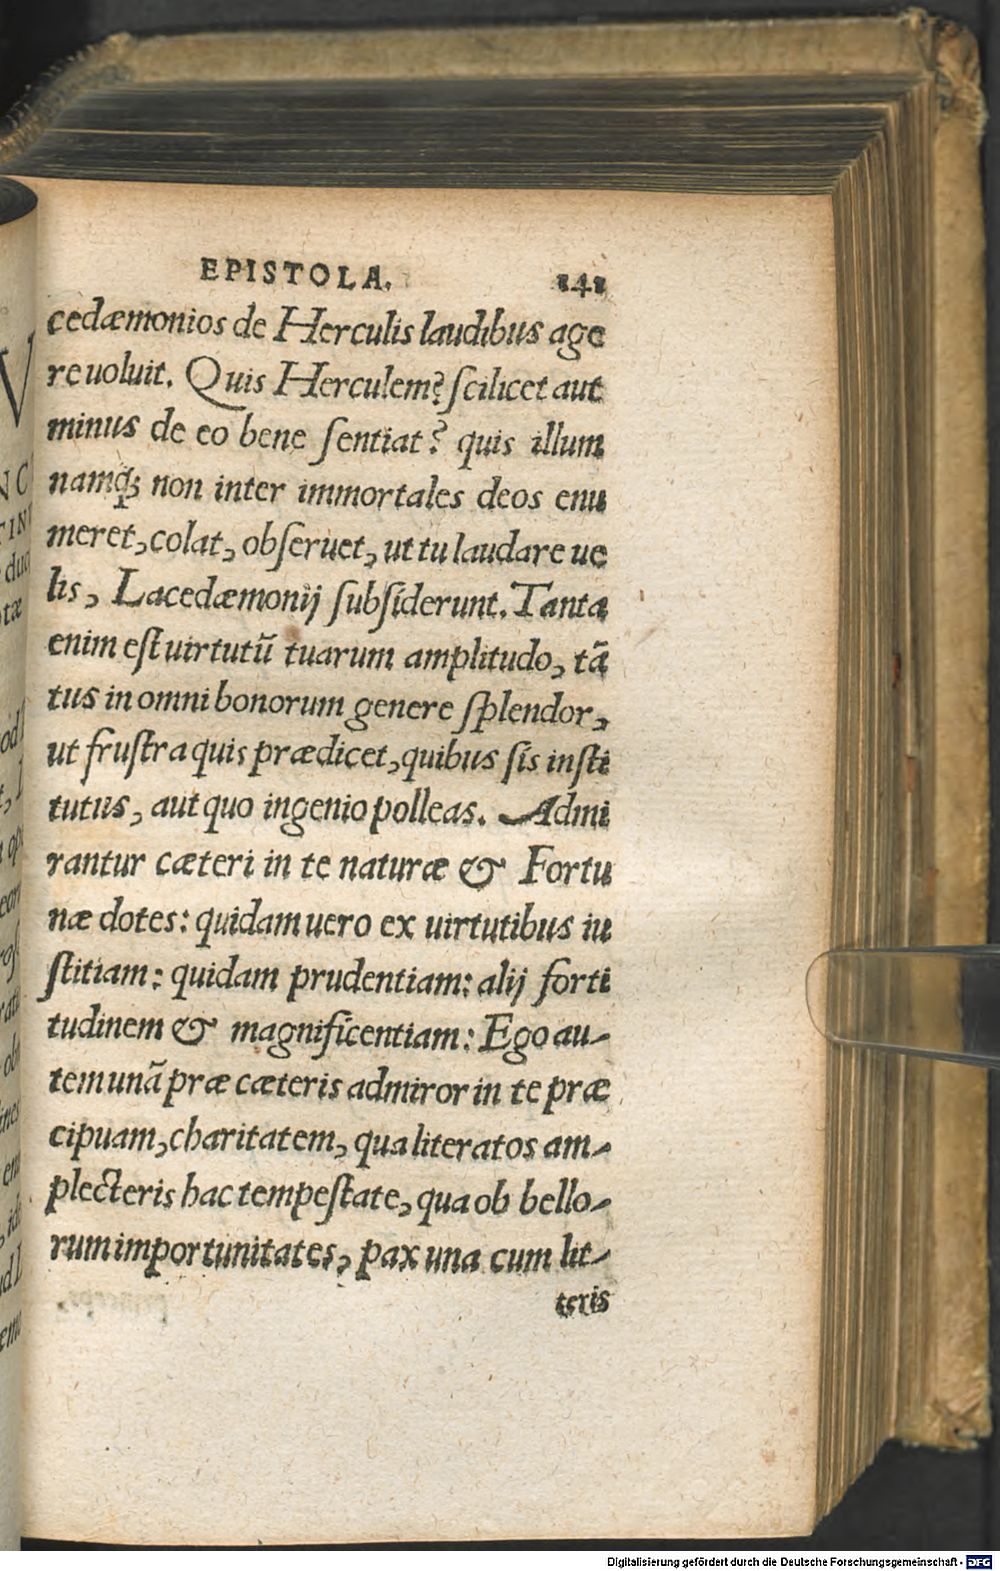 EPISTOLA. 241
cedæmonios de Herculis laudibus age
re uoluit. Quis Herculem? scilicet aut
minus de eo bene sentiat? quis illum
namq; non inter immortales deos enu
meret, colat, obseruet, ut tu laudare ue
lis, Lacedæmonij subsiderunt. Tanta
enim est uirtutũ tuarum amplitudo, tã
tus in omni bonorum genere splendor,
ut frustra quis prædicet, quibus sis insti
tutus, aut quo ingenio polleas. Admi
rantur cæteri in te naturæ & Fortu
næ dotes: quidam uero ex uirtutibus iu
stitiam: quidam prudentiam: alij forti
tudinem & magnificentiam: Ego au-
tem unã præ cæteris admiror in te præ
cipuam, charitatem, qua literatos am-
plecteris hac tempestate, qua ob bello-
rum importunitates, pax una cum lit-
teris
Digitalisierung gefördert durch die Deutsche Forschungsgemeinschaft - DFG